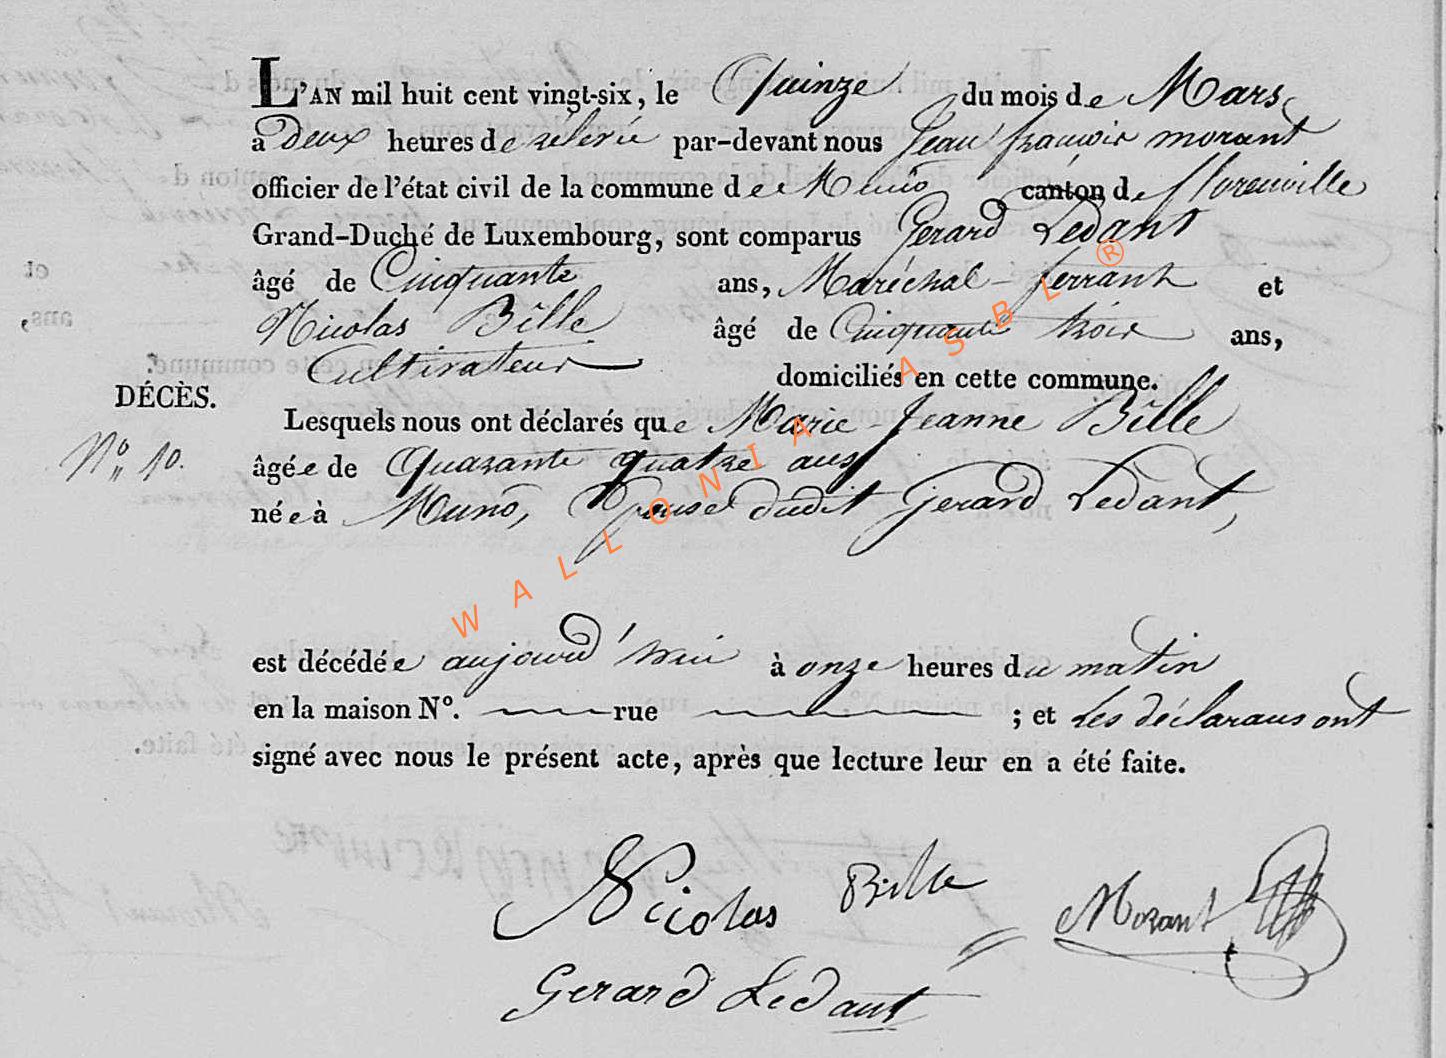 L'AN mil huit cent vingt-six, le Quinze du mois de Mars
à Deux heures de relevée par-devant nous Jean françois morant
officier de l'état civil de la commune de Muno canton de florenville
Grand-Duché de Luxembourg, sont comparus Gerard Ledant
âgé de Cinquante ans, Maréchal-ferrant et
Nicolas Bille âgé de Cinquante trois ans,
Cultivateur domiciliés en cette commune.
DÉCÈS.
Lesquels nous ont déclarés que Marie Jeanne Bille
N° 10.
âgée de Quarante quatre ans
née à Muno, Epouse dudit Gerard Ledant,
est décédée aujourd'hui à onze heures du matin
en la maison N°. rue ; et Les déclarans ont
signé avec nous le présent acte, après que lecture leur en a été faite.
Nicolas Bille
Morant
Gerard Ledant
WALLONIA ASBL ®